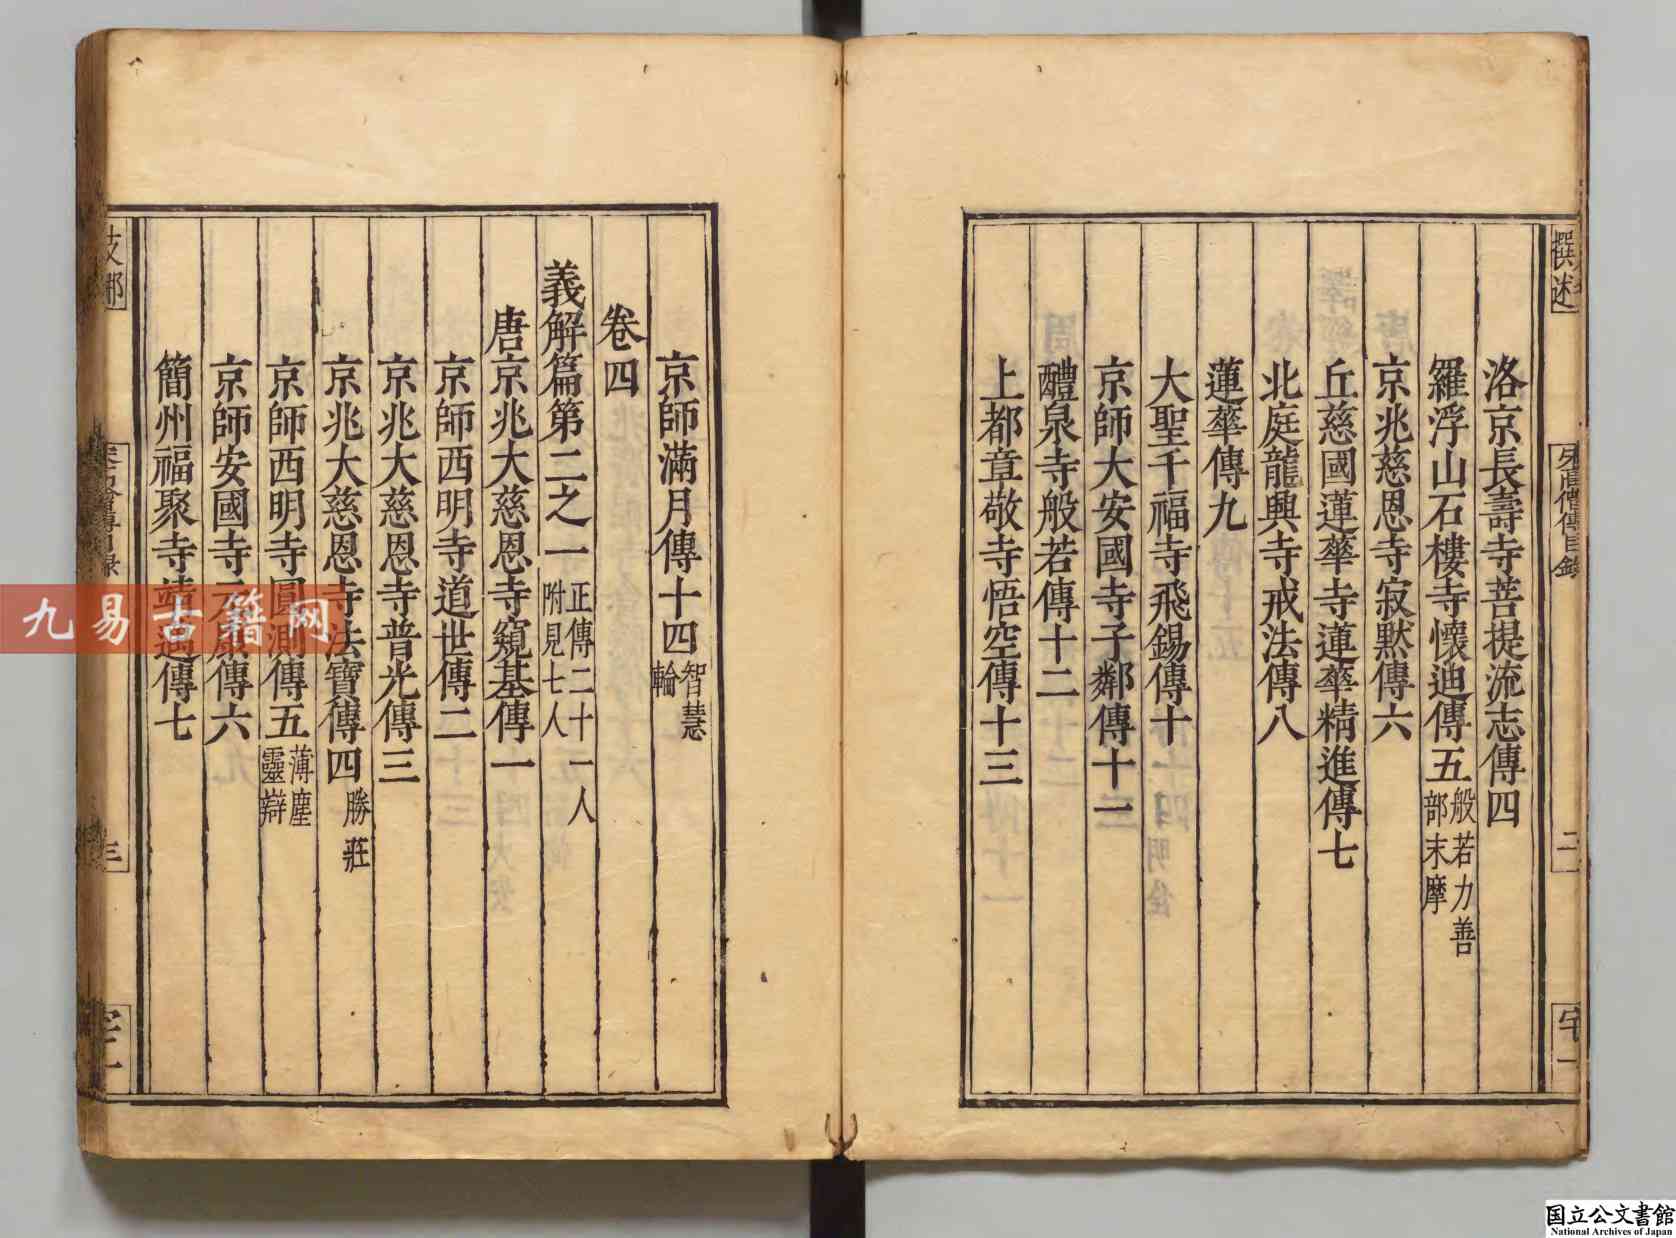 撰述
宋高僧傳目錄
二
宅一
洛京長壽寺菩提流志傳四
羅浮山石樓寺懷迪傳五 般若力 善部末摩
京兆慈恩寺寂默傳六
丘慈國蓮華寺蓮華精進傳七
北庭龍興寺戒法傳八
蓮華傳九
大聖千福寺飛錫傳十
京師大安國寺子鄰傳十一
醴泉寺般若傳十二
上都章敬寺悟空傳十三
京師滿月傳十四 智慧輪
卷四
義解篇第二之一 正傳二十一人 附見七人
唐京兆大慈恩寺窺基傳一
京師西明寺道世傳二
京兆大慈恩寺普光傳三
京兆大慈恩寺法寶傳四 勝莊
京師西明寺圓測傳五 薄塵 靈辯
京師安國寺元康傳六
簡州福聚寺靖邁傳七
支那
三
宅一
九易古籍网
国立公文書館
National Archives of Japan